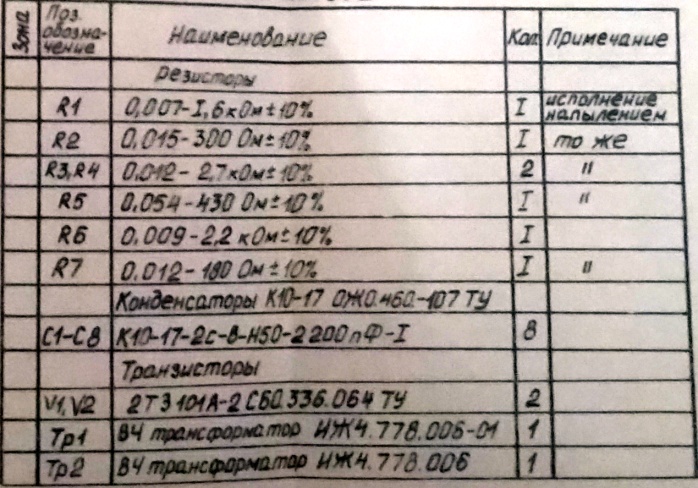 Зона Поз. обозначение Наименование Кол. Примечание
Резисторы
R1 0,007-I,6 кОм±10% I исполнение напылением
R2 0,015-300 Ом±10% I то же
R3,R4 0,012-2,7кОм±10% 2 "
R5 0,054-430 Ом±10% I "
R6 0,009-2,2 кОм±10% I
R7 0,012-180 Ом±10% I "
Конденсаторы К10-17 ОЖ0.460-107 ТУ
C1-C8 К10-17-2с-в-Н50-2200пФ-I 8
Транзисторы
V1,V2 2Т3101А-2 СБ0.336.064 ТУ 2
Тр1 ВЧ трансформатор ИЖ4.778.006-01 1
Тр2 ВЧ трансформатор ИЖ4.778.006 1